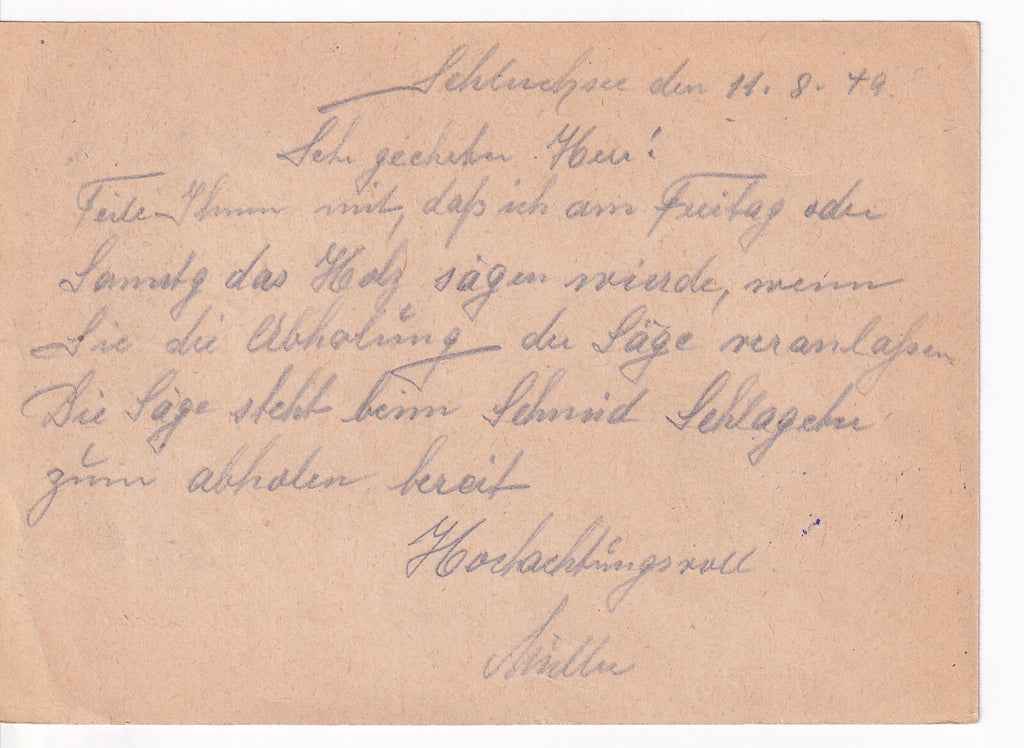 Schluchsee den 11. 8. 49.
Sehr geehrter Herr!
Teile Ihnen mit, daß ich am Freitag oder
Samstg das Holz sägen wierde, wenn
Sie die Abholung der Säge veranlaßen
Die Säge steht beim Schmid Schlageter
zum abholen bereit
Hochachtungsvoll
Müller